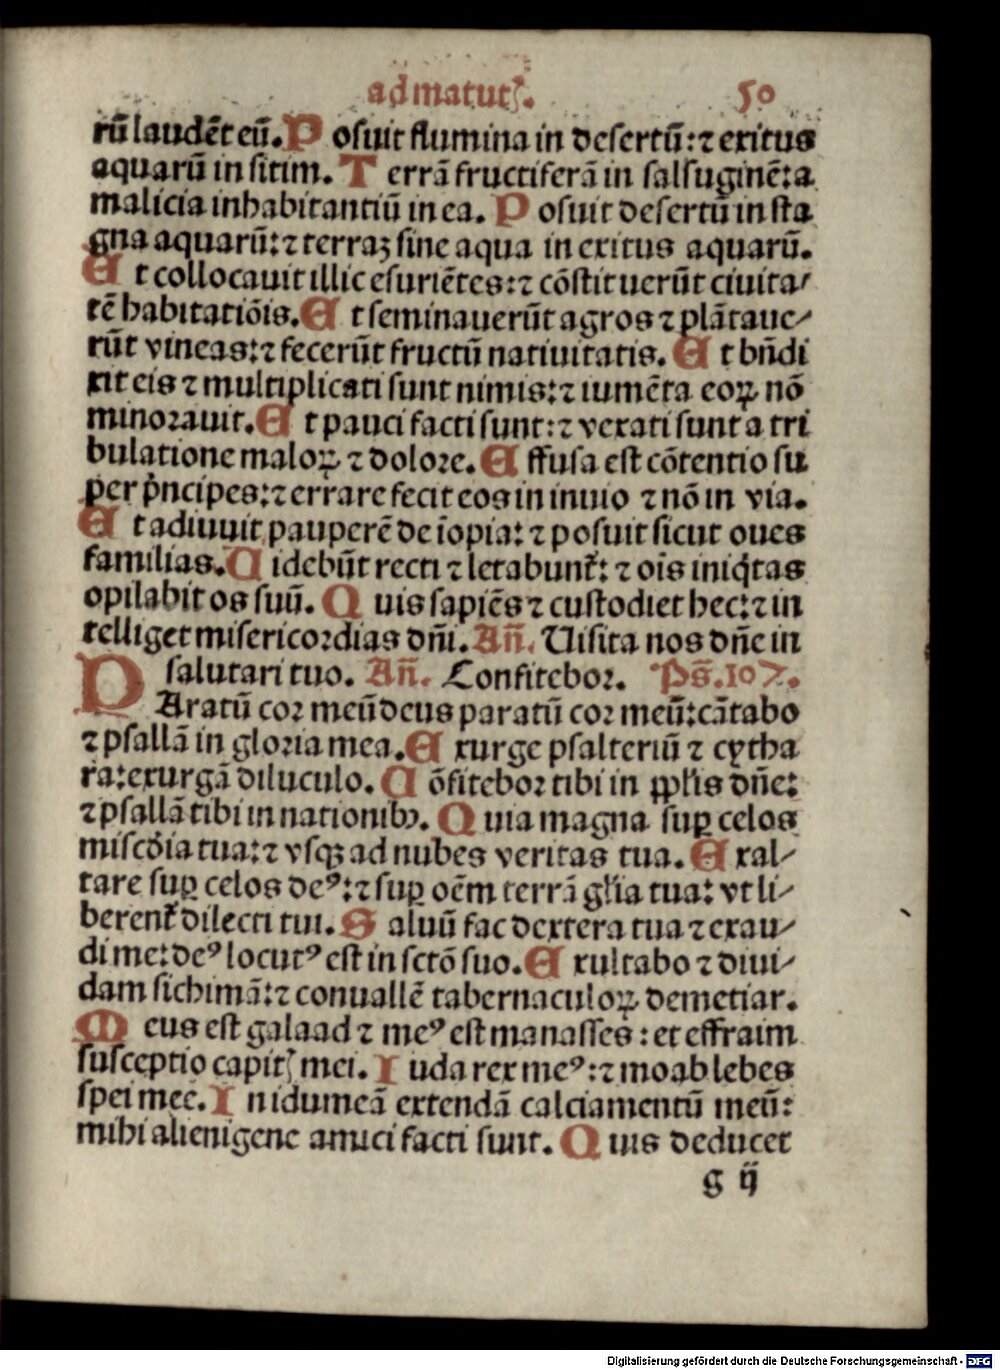 ad matut. 50
rū laudēt eū. Posuit flumina in desertū: ⁊ exitus
aquarū in sitim. Terrā fructiferā in salsuginē: a
malicia inhabitantiū in ea. Posuit desertū in sta
gna aquarū: ⁊ terraꝫ sine aqua in exitus aquarū.
Et collocauit illic esuriētes: ⁊ cōstituerūt ciuita/
tē habitatiōis. Et seminauerūt agros ⁊ plātaue/
rūt vineas: ⁊ fecerūt fructū natiuitatis. Et bñdi
xit eis ⁊ multiplicati sunt nimis: ⁊ iumēta eoꝝ nō
minorauit. Et pauci facti sunt: ⁊ vexati sunt a tri
bulatione maloꝝ ⁊ dolore. Effusa est cōtentio su
per p̄ncipes: ⁊ errare fecit eos in inuio ⁊ nō in via.
Et adiuuit pauperē de īopia: ⁊ posuit sicut oues
familias. Uidebūt recti ⁊ letabunt᷑: ⁊ oīs iniq̄tas
opilabit os suū. Quis sapiēs ⁊ custodiet hec: ⁊ in
telliget misericordias dñi. Añ. Uisita nos dñe in
salutari tuo. Añ. Confitebor. Ps̄. 107.
PAratū cor meū deus paratū cor meū: cātabo
⁊ psallā in gloria mea. Exurge psalteriū ⁊ cytha
ra: exurgā diluculo. Cōfitebor tibi in ppl̄is dñe:
⁊ psallā tibi in nationibꝰ. Quia magna suꝑ celos
miscd̄ia tua: ⁊ vsqꝫ ad nubes veritas tua. Exal/
tare suꝑ celos deꝰ: ⁊ suꝑ oēm terrā gl̄ia tua: vt li/
berent᷑ dilecti tui. Saluū fac dextera tua ⁊ exau/
di me: deꝰ locutꝰ est in sctō suo. Exultabo ⁊ diui/
dam sichimā: ⁊ conuallē tabernaculoꝝ demetiar.
Meus est galaad ⁊ meꝰ est manasses: et effraim
susceptio capitꝭ mei. Iuda rex meꝰ: ⁊ moab lebes
spei mee. In idumeā extendā calciamentū meū:
mihi alienigene amici facti sunt. Quis deducet
g ij
Digitalisierung gefördert durch die Deutsche Forschungsgemeinschaft - DFG